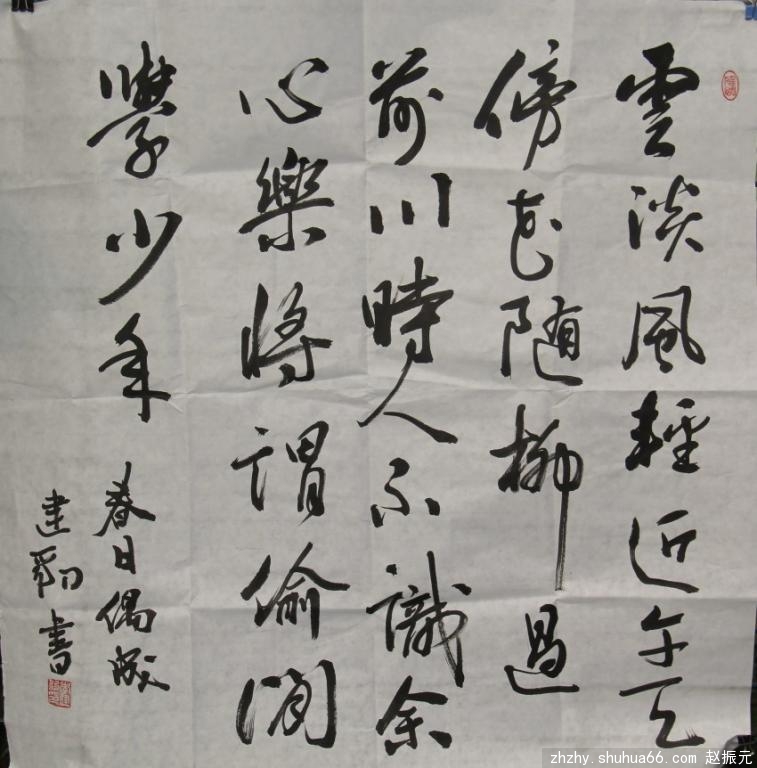 雲淡風輕近午天
傍花随柳過
前川時人不識余
心樂將謂偷閒
學少年
春日偶成
建勛書
zhzhy.shuhua66.com 赵振元